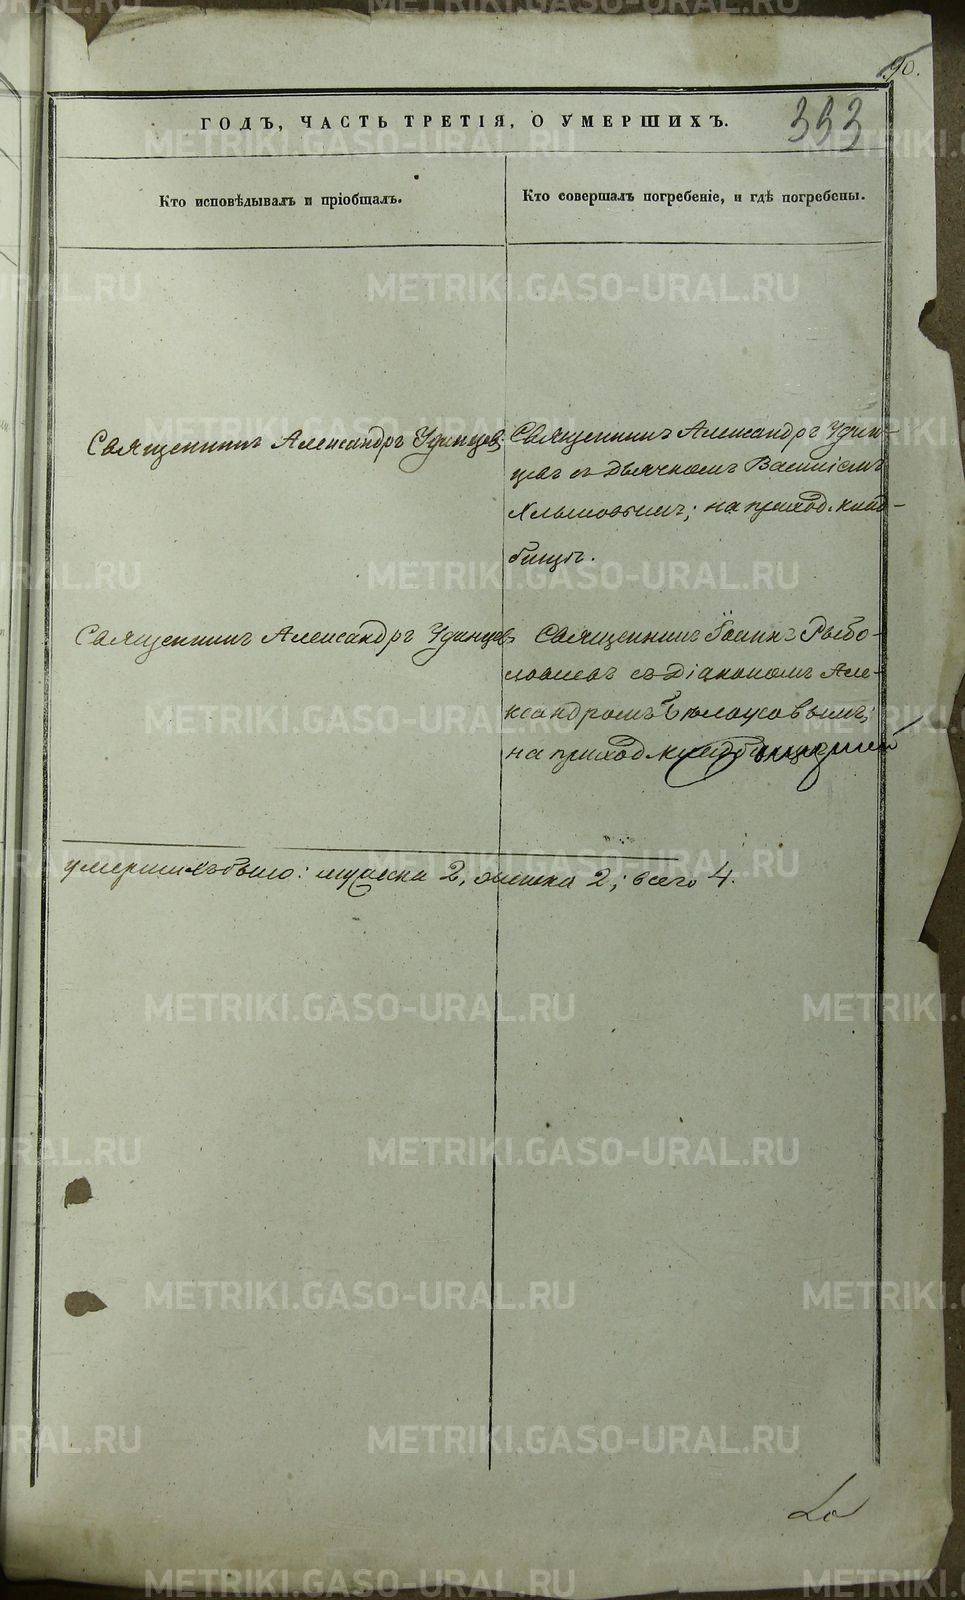 90.
353
ГОДЪ, ЧАСТЬ ТРЕТІЯ, О УМЕРШИХЪ.
Кто исповѣдывалъ и пріобщалъ.
Кто совершалъ погребеніе, и гдѣ погребены.
Священникъ Александръ Удинцев;
Священникъ Александръ Удин-
цовъ съ Дьячкомъ Василіемъ
Хлыновымъ; на приход. клад-
бищѣ.
Священникъ Александръ Удинцев
Священникъ Іоаннъ Рыбо-
ловлевъ съ Діакономъ Але-
ксандромъ Бѣлоусовымъ;
на приход. кладбищѣ
умершихъ было: мужска 2, женска 2; всего 4.
METRIKI.GASO-URAL.RU